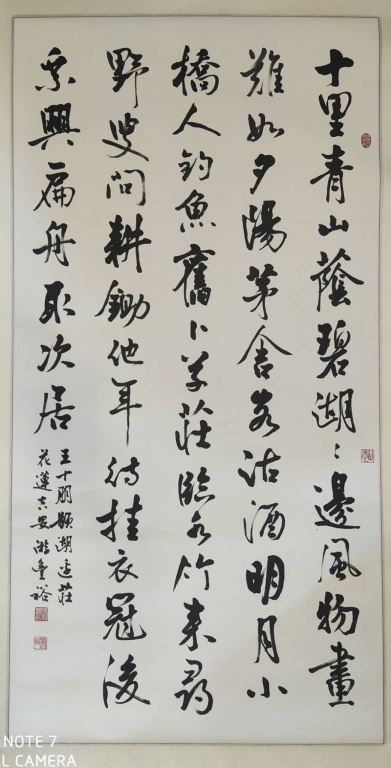 十里青山蔭碧湖〻邊風物畫
難如夕陽茅舍客沽酒明月小
橋人釣魚舊卜草莊臨水竹來尋
野叟問耕鋤他年待挂衣冠後
乘興扁舟取次居
王十朋題湖邊莊
花蓮吉安游裕
NOTE 7
L CAMERA